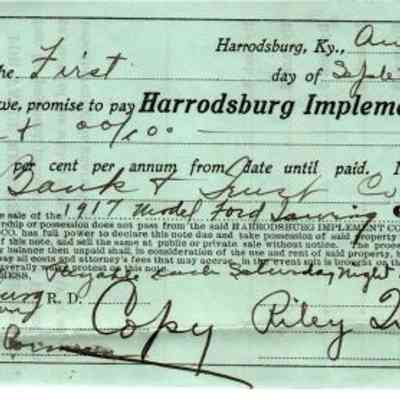 Harrodsburg, Ky., Au
the First day of Septe
we, promise to pay Harrodsburg Impleme
& 00/100
per cent per annum from date until paid.
Bank & Trust Co
e sale of the 1917 Model Ford Touring
ership or possession does not pass from the said HARRODSBURG IMPLEMENT CO
CO. has full power to declare this note due and take possession of said property
of this note, and sell the same at public or private sale without notice. The proce
y balance then unpaid shall, in consideration of the use and rent of said property,
ay all costs and attorney's fees that may accrue, in the event suit is brought on th
verally would protest as this note.
NESS, each Saturday Night
R. D. Copy Riley